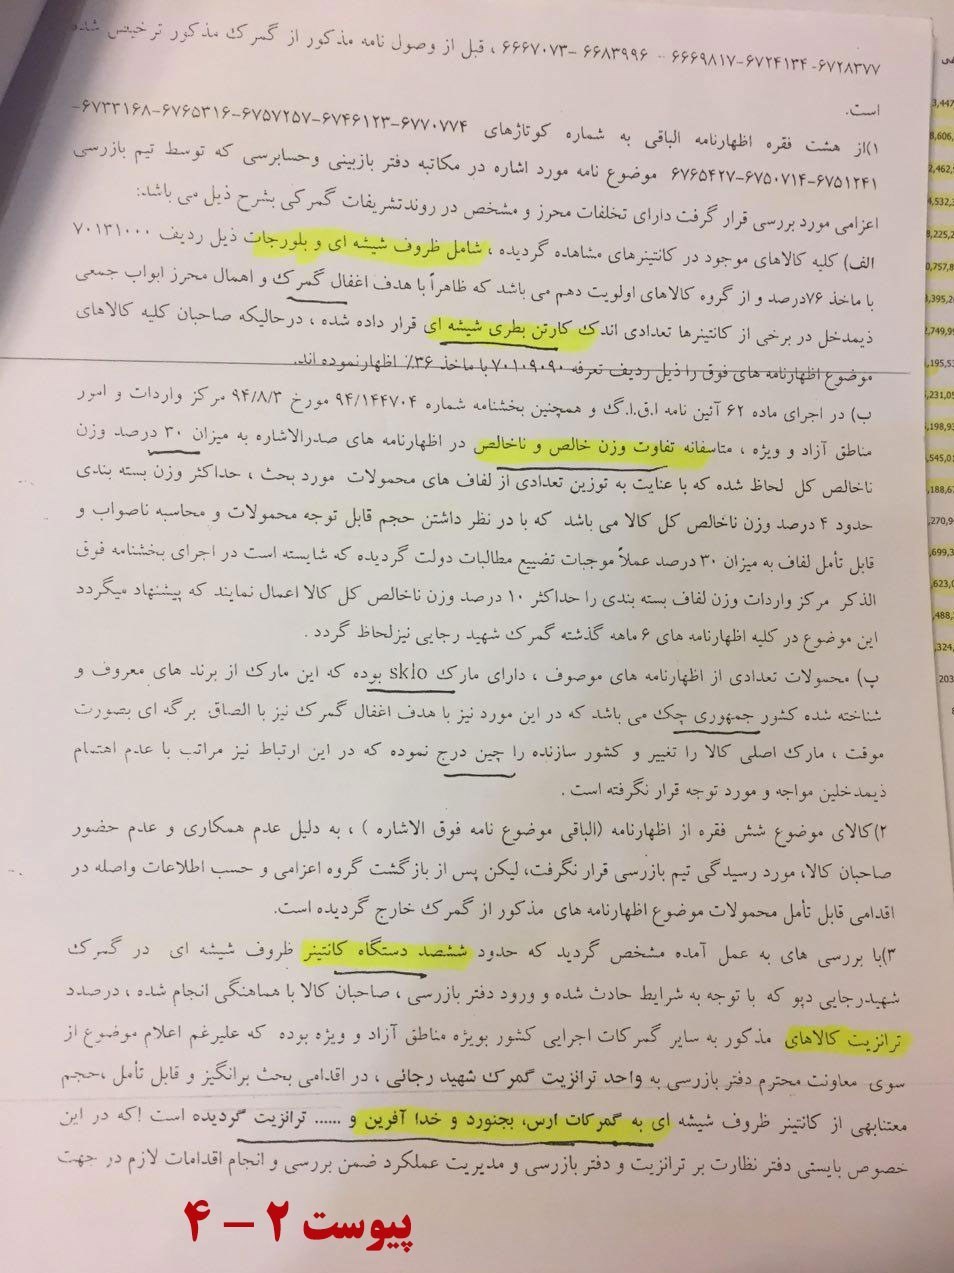 ۶۷۲۸۳۷۷-۶۷۲۴۱۳۴-۶۶۶۹۸۱۷ - ۶۶۸۳۹۹۶ -۶۶۶۷۰۷۳ ، قبل از وصول نامه مذکور از گمرک مذکور ترخیص شده
است.
۱)از هشت فقره اظهارنامه الباقی به شماره کوتاژهای ۶۷۷۰۷۷۴-۶۷۴۶۱۲۳-۶۷۵۷۲۵۷-۶۷۶۵۳۱۶-۶۷۳۳۱۶۸-
۶۷۵۱۲۴۱-۶۷۵۰۷۱۴-۶۷۶۵۴۲۷ موضوع نامه مورد اشاره در مکاتبه دفتر بازبینی وحسابرسی که توسط تیم بازرسی
اعزامی مورد بررسی قرار گرفت دارای تخلفات محرز و مشخص در روندتشریفات گمرکی بشرح ذیل می باشد:
الف) کلیه کالاهای موجود در کانتینرهای مشاهده گردیده ، شامل ظروف شیشه ای و بلورجات ذیل ردیف ۷۰۱۳۱۰۰۰
با ماخذ ۷۶درصد و از گروه کالاهای اولویت دهم می باشد که ظاهراً با هدف اغفال گمرک و اهمال محرز ابواب جمعی
ذیمدخل در برخی از کانتینرها تعدادی اندک کارتن بطری شیشه ای قرار داده شده ، درحالیکه صاحبان کلیه کالاهای
موضوع اظهارنامه های فوق را ذیل ردیف تعرفه ۷۰۱۰۹۰۹۰ با ماخذ ۳۶٪ اظهارنموده اند.
ب) در اجرای ماده ۶۲ آئین نامه ا.ق.ا.گ و همچنین بخشنامه شماره ۹۴/۱۴۴۷۰۴ مورخ ۹۴/۸/۳ مرکز واردات و امور
مناطق آزاد و ویژه ، متاسفانه تفاوت وزن خالص و ناخالص در اظهارنامه های صدرالاشاره به میزان ۳۰ درصد وزن
ناخالص کل لحاظ شده که با عنایت به توزین تعدادی از لفاف های محمولات مورد بحث ، حداکثر وزن بسته بندی
حدود ۴ درصد وزن ناخالص کل کالا می باشد که با در نظر داشتن حجم قابل توجه محمولات و محاسبه ناصواب و
قابل تأمل لفاف به میزان ۳۰ درصد عملاً موجبات تضییع مطالبات دولت گردیده که شایسته است در اجرای بخشنامه فوق
الذکر مرکز واردات وزن لفاف بسته بندی را حداکثر ۱۰ درصد وزن ناخالص کل کالا اعمال نمایند که پیشنهاد میگردد
این موضوع در کلیه اظهارنامه های ۶ ماهه گذشته گمرک شهید رجایی نیزلحاظ گردد .
پ) محمولات تعدادی از اظهارنامه های موصوف ، دارای مارک sklo بوده که این مارک از برند های معروف و
شناخته شده کشور جمهوری چک می باشد که در این مورد نیز با هدف اغفال گمرک نیز با الصاق برگه ای بصورت
موقت ، مارک اصلی کالا را تغییر و کشور سازنده را چین درج نموده که در این ارتباط نیز مراتب با عدم اهتمام
ذیمدخلین مواجه و مورد توجه قرار نگرفته است .
۲)کالای موضوع شش فقره از اظهارنامه (الباقی موضوع نامه فوق الاشاره ) ، به دلیل عدم همکاری و عدم حضور
صاحبان کالا، مورد رسیدگی تیم بازرسی قرار نگرفت، لیکن پس از بازگشت گروه اعزامی و حسب اطلاعات واصله در
اقدامی قابل تأمل محمولات موضوع اظهارنامه های مذکور از گمرک خارج گردیده است.
۳)با بررسی های به عمل آمده مشخص گردید که حدود ششصد دستگاه کانتینر ظروف شیشه ای در گمرک
شهیدرجایی دپو که با توجه به شرایط حادث شده و ورود دفتر بازرسی ، صاحبان کالا با هماهنگی انجام شده ، درصدد
ترانزیت کالاهای مذکور به سایر گمرکات اجرایی کشور بویژه مناطق آزاد و ویژه بوده که علیرغم اعلام موضوع از
سوی معاونت محترم دفتر بازرسی به واحد ترانزیت گمرک شهید رجائی ، در اقدامی بحث برانگیز و قابل تأمل ،حجم
معتنابهی از کانتینر ظروف شیشه ای به گمرکات ارس، بجنورد و خدا آفرین و ...... ترانزیت گردیده است !که در این
خصوص بایستی دفتر نظارت بر ترانزیت و دفتر بازرسی و مدیریت عملکرد ضمن بررسی و انجام اقدامات لازم در جهت
پیوست ۲ – ۴